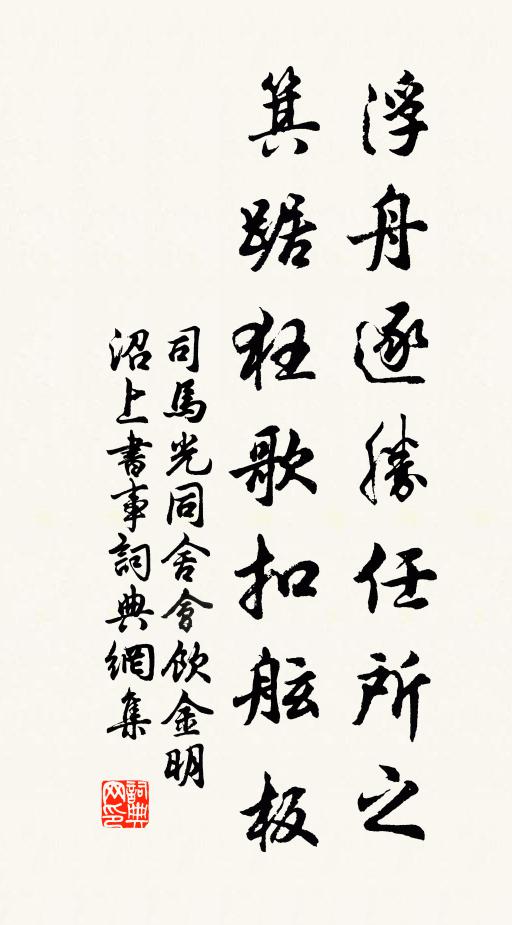 浮舟逐勝任所之
箕踞狂歌扣舷板
司馬光同舍會飲金明
沼上書事詞典網集
詞典网印